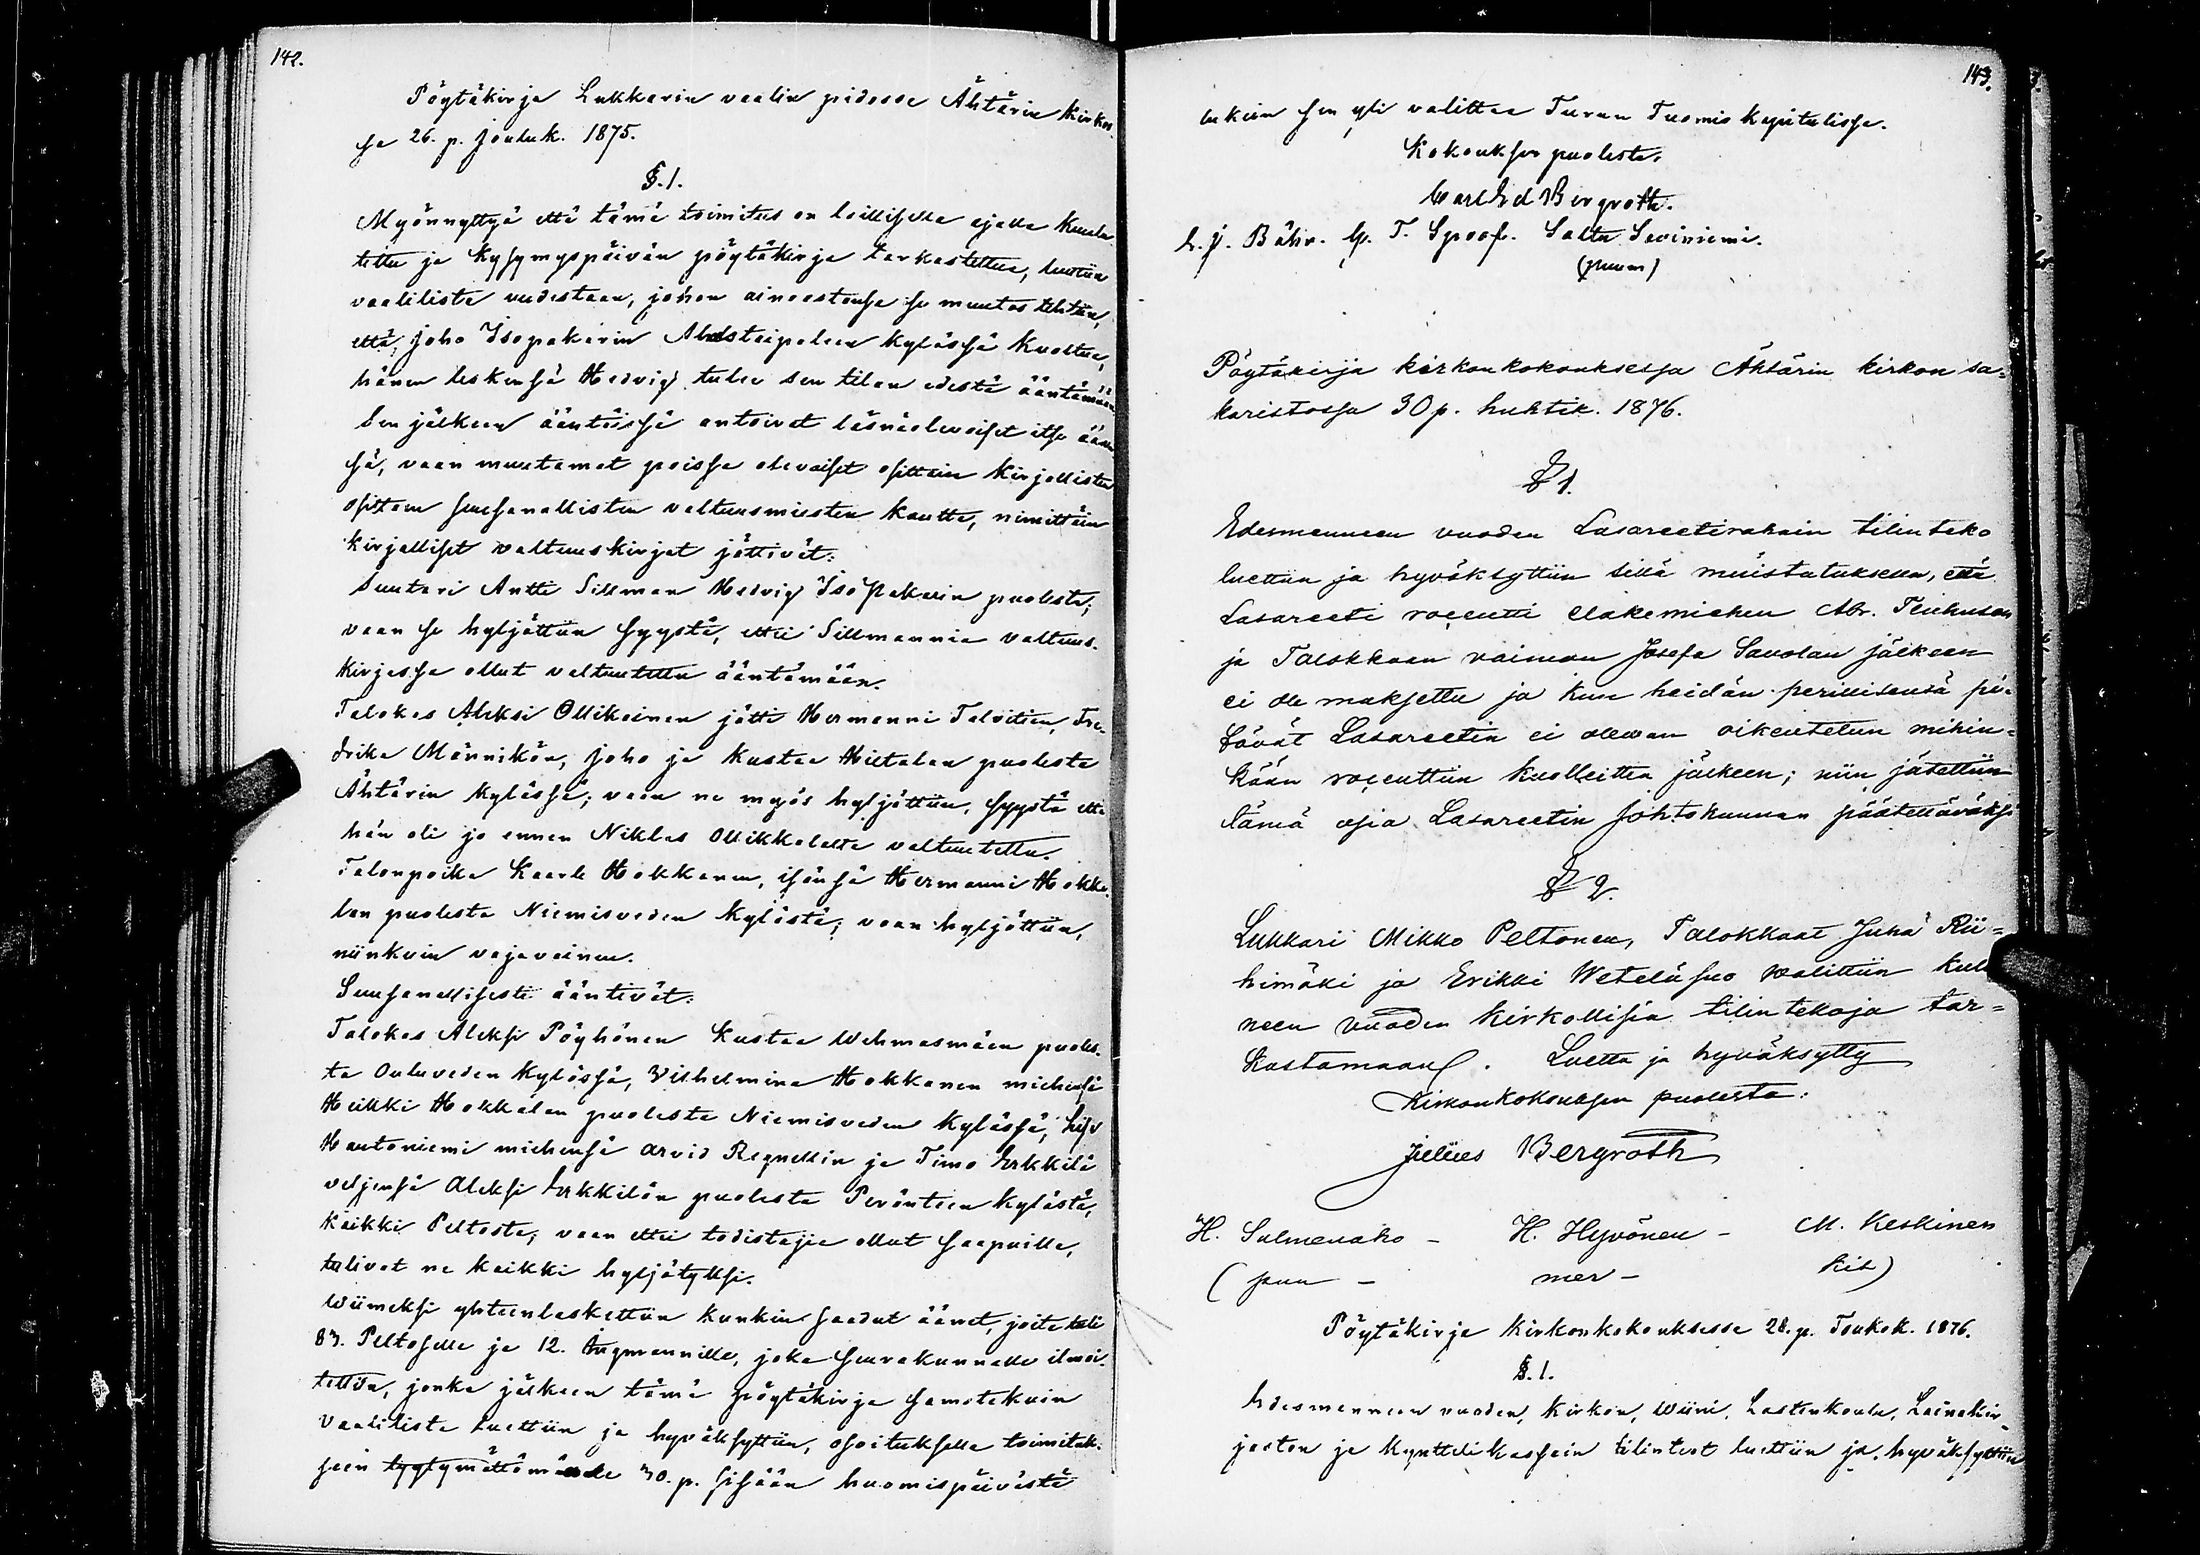 142.
Pöytäkirja Lukkarin vaalin pidossa Ähtärin kirkos-
sa 26. p. jouluk. 1875.
§. 1.
Myönnyttyä että tämä toimitus on laillisella ajalla kuulu-
tettu ja kysymyspäivän pöytäkirja tarkastettua, luettiin
vaalilista uudestaan, johon ainoastansa se muutos tehtiin,
että, Joho Isopakarin Alastaipaleen kylässä kuoltua,
hänen leskensä Hedvig tulee sen tilan edestä ääntämään
Sen jälkeen ääntäissä antoivat läsnäolevaiset itse äänen-
sä, vaan muutamat poissa olevaiset osittain kirjallisten
osittain suusanallisten valtuusmiesten kautta, nimittäin
kirjalliset valtuuskirjat jättivät:
Suutari Antti Sillman Hedvig Iso Pakarin puolesta;
vaan se hyljättiin syystä, ettei Sillmannia valtuus-
kirjassa ollut valtuutettu ääntämään.
Talokas Aleksi Ollikainen jätti Hermanni Talvitien, Fre-
drika Männikön, Joho ja Kustaa Hietalan puolesta
Ähtärin kylässä; vaan ne myös hyljättiin, syystä että
hän oli jo ennen Niklas Ollikkalalta valtuutettu.
Talonpoika Kaarle Hokkanen, isänsä Hermanni Hokka-
lan puolesta Niemisveden kylästä; vaan hyljättiin,
niinkuin vajavainen.
Suusanallisesti ääntivät:
Talokas Aleksi Pöyhönen Kustaa Wehmasmäen puoles-
ta Ouluveden kylässä, Vilhelmina Hokkanen miehensä
Heikki Hokkalan puolesta Niemisveden kylässä; Lisv
Hautaniemi miehensä Arvid Regnellin ja Timo Erkkilä
veljensä Aleksi Erkkilän puolesta Peränteen kylästä,
kaikki Peltosta; vaan ettei todistajia ollut saapuilla,
tulivat ne kaikki hyljätyksi.
Wiimeksi yhteenlaskettiin kunkin saadut äänet, joita tuli
83. Peltoselle ja 12. Ingmannille, joka seurakunnalle ilmoi-
tettiin, jonka jälkeen tämä pöytäkirja samatekuin
vaalilista luettiin ja hyväksyttiin, osoituksella toimituk-
seen tyytymättömälle 30. p. sisään huomispäivästä
143.
lukien sen yli valittaa Turun Tuomiokapitulissa.
Kokouksen puolesta.
Carl Ed Bergroth.
L. J. Bähr. G. T. Spoof. Saltu Saviniemi.
(puum)
Pöytäkirja kirkonkokouksessa Ähtärin kirkon sa-
karistossa 30 p. huhtik. 1876.
§ 1.
Edesmenneen vuoden Lasareetirahain tilinteko
luettiin ja hyväksyttiin sillä muistutuksella, että
Lasareeti rocentti eläkemiehen Abr. Tiuhusen
ja Talokkaan vaimon Josefa Savolan jälkeen
ei ole maksettu ja kun heidän perillisensä pi-
tävät Lasareetin ei olevan oikeutetun mihin-
kään rocenttiin kuolleitten jälkeen; niin jätettiin
tämä asia Lasareetin Johtokunnan päätettäväksi
§ 2.
Lukkari Mikko Peltonen, Talokkaat Juha Rii-
himäki ja Erikki Weteläsuo valittiin kulu-
neen vuoden kirkollisia tilintekoja tar-
kastamaan. Luettu ja hyväksytty
Kirkonkokouksen puolesta:
Julius Bergroth
H. Salmenaho - H. Hyvönen - M. Keskinen
(puu - mer - kit)
Pöytäkirja kirkonkokouksessa 28. p. Toukok. 1876.
§. 1.
Edesmenneen vuoden, kirkon, wiini, Lastenkoulu, Lainakir-
jaston ja kynttiläkassain tilinteot luettiin ja hyväksyttiin